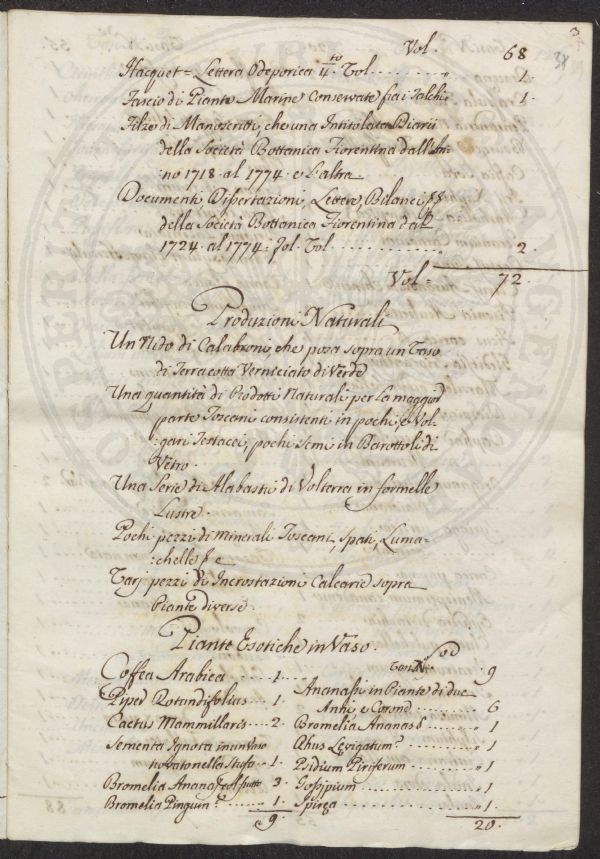 3
38
Vol. 68
Hacquet = Lettera Odeporica 4.to Vol. " 1.
Fascio di Piante Marine Conservate fra i Talchi " 1.
Filze di Manoscritti, che una Intitolata Diarii
della Società Bottanica Fiorentina dall' An-
no 1718. al 1774. e l'altra
Documenti Dissertazioni, Lettere, Bilanci
della Società Bottanica Fiorentina dal
1724. al 1774. fol. Vol. " 2.
Vol = 72.
Produzioni Naturali
Un Nido di Calabroni, che posa sopra un Vaso
di Terra cotta Verniciato di Verde
Una quantità di Prodotti Naturali per la maggior
parte Toscani consistenti in pochi, e Vol-
:gari Testacei, pochi Semi in Barottoli di
Vetro.
Una Serie di Alabastri di Volterra in formelle
Lustre.
Pochi pezzi di Minerali Toscani, Spati, Luma-
:chelle
Varj pezzi di Incrostazioni Calcarie sopra
Piante diverse.
Piante Esotiche in Vaso.
Coffea Arabica 1.
Piper Rotundifolias 1.
Cactus Mammillares 2.
Sementa Ignota in un Vaso
trovato nella Stufa 1.
Bromelia Ananas col frutto 3.
Bromelia Pinguin? " 1.
9.
N. 9
Ananassi in Piante di due
Anni e Corone 6
Bromelia Ananas " 1
Rhus Levigatum? " 1
Psidium Piriferum " 1
Gossipium " 1
Spirea " 1.
20.